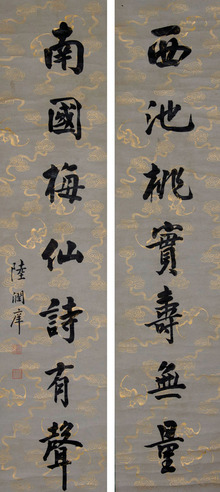 西池桃實壽無量
南國梅仙詩有聲
陸潤庠